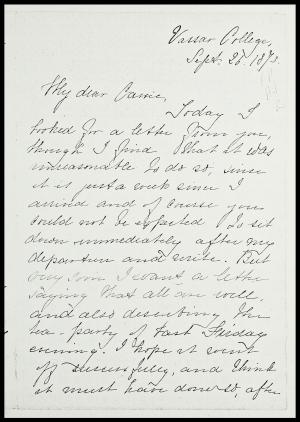 Vassar College,
Sept. 25. 1873.
My dear Carrie,
Today I
looked for a letter from you,
though I find that it was
unreasonable to do so, since
it is just a week since I
arrived and of course you
could not be expected to set
down immediately after my
departure and write. But
very soon I want a letter
saying that all are well,
and also describing the
tea-party of last Friday
evening. I hope it went
off successfully, and think
it must have done so, after